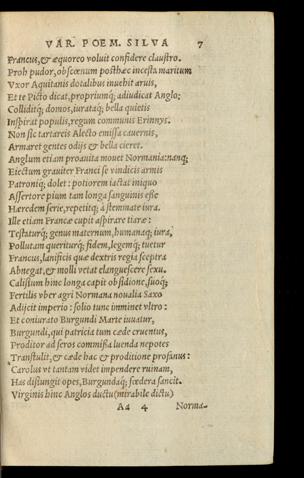 VAR. POEM. SILVA 7
Francus, & æquoreo voluit confidere claustro.
Proh pudor, obscœnum posthæc incesta maritum
Vxor Aquitanis dotalibus inuehit aruis,
Et te Picto dicat, propriumq; adiudicat Anglo:
Colliditq; domos, iurataq; bella quietis
Inspirat populis, regum communis Erinnys.
Non sic tartareis Alecto emissa cauernis,
Armaret gentes odijs & bella cieret.
Anglum etiam proauita mouet Normania: nanq;
Eiectum grauiter Franci se vindicis armis
Patroniq; dolet: potiorem iactat iniquo
Assertore pium tam longa sanguinis esse
Hæredem serie, repetitq; à stemmate iura.
Ille etiam Francæ cupit aspirare tiaræ:
Testaturq; genus maternum, humanaq; iura,
Pollutam queriturq; fidem, legemq; tuetur
Francus, lanificis quæ dextris regia sceptra
Abnegat, & molli vetat elanguescere sexu.
Calisium hinc longa capit obsidione, suoq;
Fertilis vber agri Normana noualia Saxo
Adijcit imperio: solio tunc imminet vltro:
Et coniurato Burgundi Marte iuuatur,
Burgundi, qui patricia tum cæde cruentus,
Proditor ad seros commissa luenda nepotes
Transtulit, & cæde hac & proditione profanus:
Carolus vt tantam videt impendere ruinam,
Has distungit opes, Burgundaq; fœdera sancit.
Virginis hinc Anglos ductu (mirabile dictu)
Aa 4 Norma-